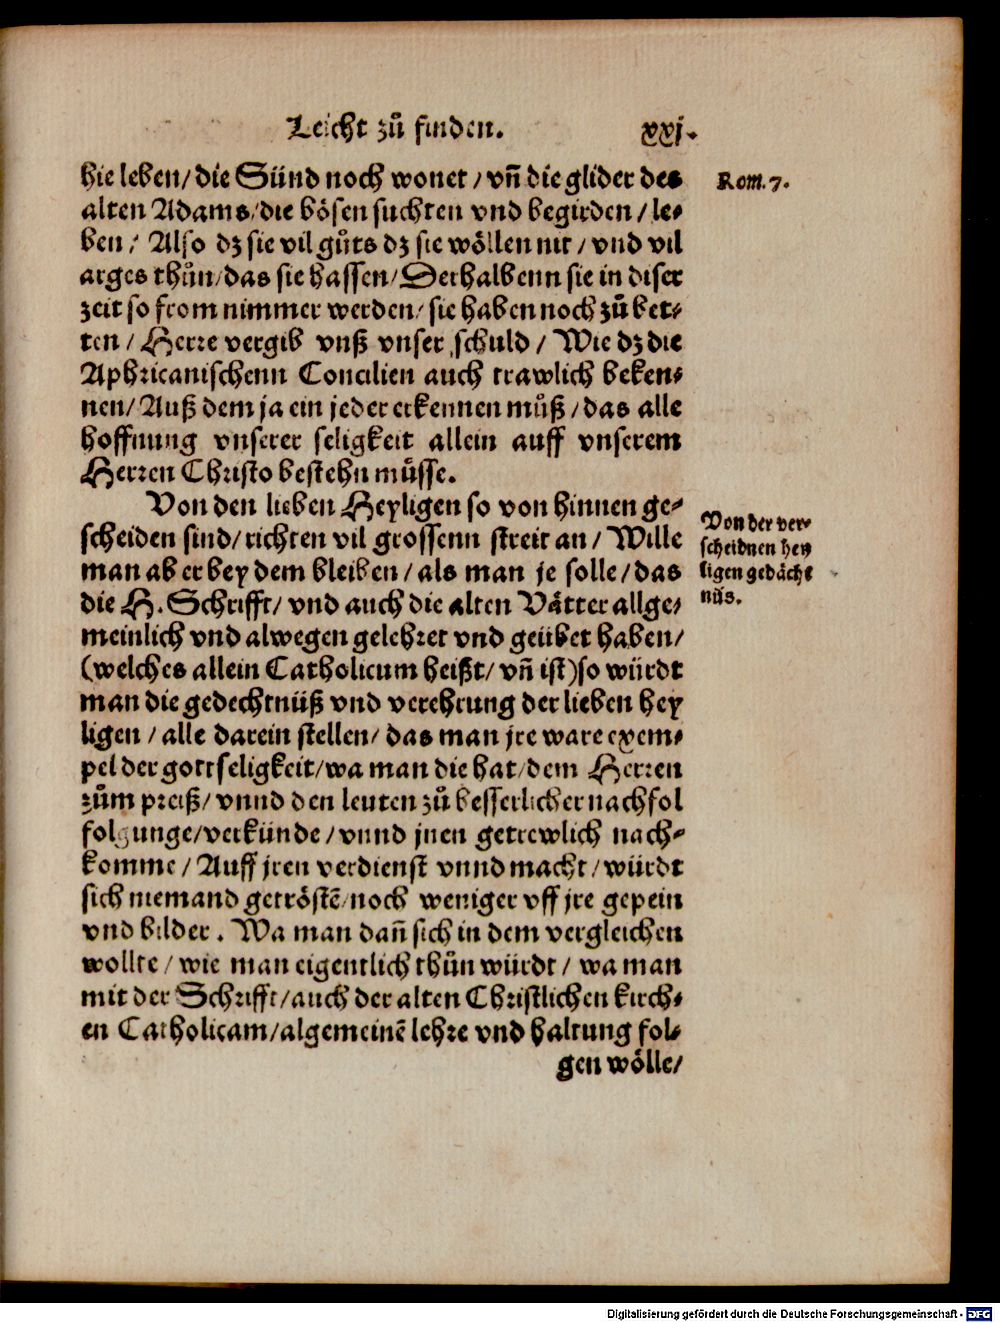 Leicht zů finden. xxj.
hie leben/die Sünd noch wonet/vñ die glider des
Rom. 7.
alten Adams/die bösen suchten vnd begirden/le-
ben/ Also dz sie vil gůts dz sie wöllen nit/vnd vil
arges thůn/das sie hassen/Derhalbenn sie in diser
zeit so from nimmer werden/sie haben noch zů bet-
ten/Herre vergib vnß vnser schuld/Wie dz die
Aphricanischenn Concilien auch trawlich beken-
nen/Auß dem ja ein jeder erkennen můß/das alle
hoffnung vnserer seligkeit allein auff vnserem
Herren Christo bestehn můsse.
Von den lieben Heyligen so von hinnen ge-
scheiden sind/richten vil grossenn streit an/Wille
man aber bey dem bleiben/als man je solle/das
die H. Schrifft/vnd auch die alten Vätter allge-
meinlich vnd alwegen gelehret vnd geübet haben/
(welches allein Catholicum heißt/vñ ist)so würdt
man die gedechtnüß vnd verehrung der lieben hey
ligen/alle darein stellen/das man jre ware exem-
pel der gottseligkeit/wa man die hat/dem Herren
zům preiß/vnnd den leuten zů besserlicher nachfol
folgunge/verkünde/vnnd jnen getrewlich nach-
komme/Auff jren verdienst vnnd macht/würdt
sich niemand getröstē/noch weniger vff jre gepein
vnd bilder. Wa man dañ sich in dem vergleichen
wollte/wie man eigentlich thůn würdt/wa man
mit der Schrifft/auch der alten Christlichen kirch-
en Catholicam/algemeinē lehre vnd haltung fol-
gen wölle/
Von der ver-
scheidnen hey
ligen gedächt
nüs.
Digitalisierung gefördert durch die Deutsche Forschungsgemeinschaft - DFG